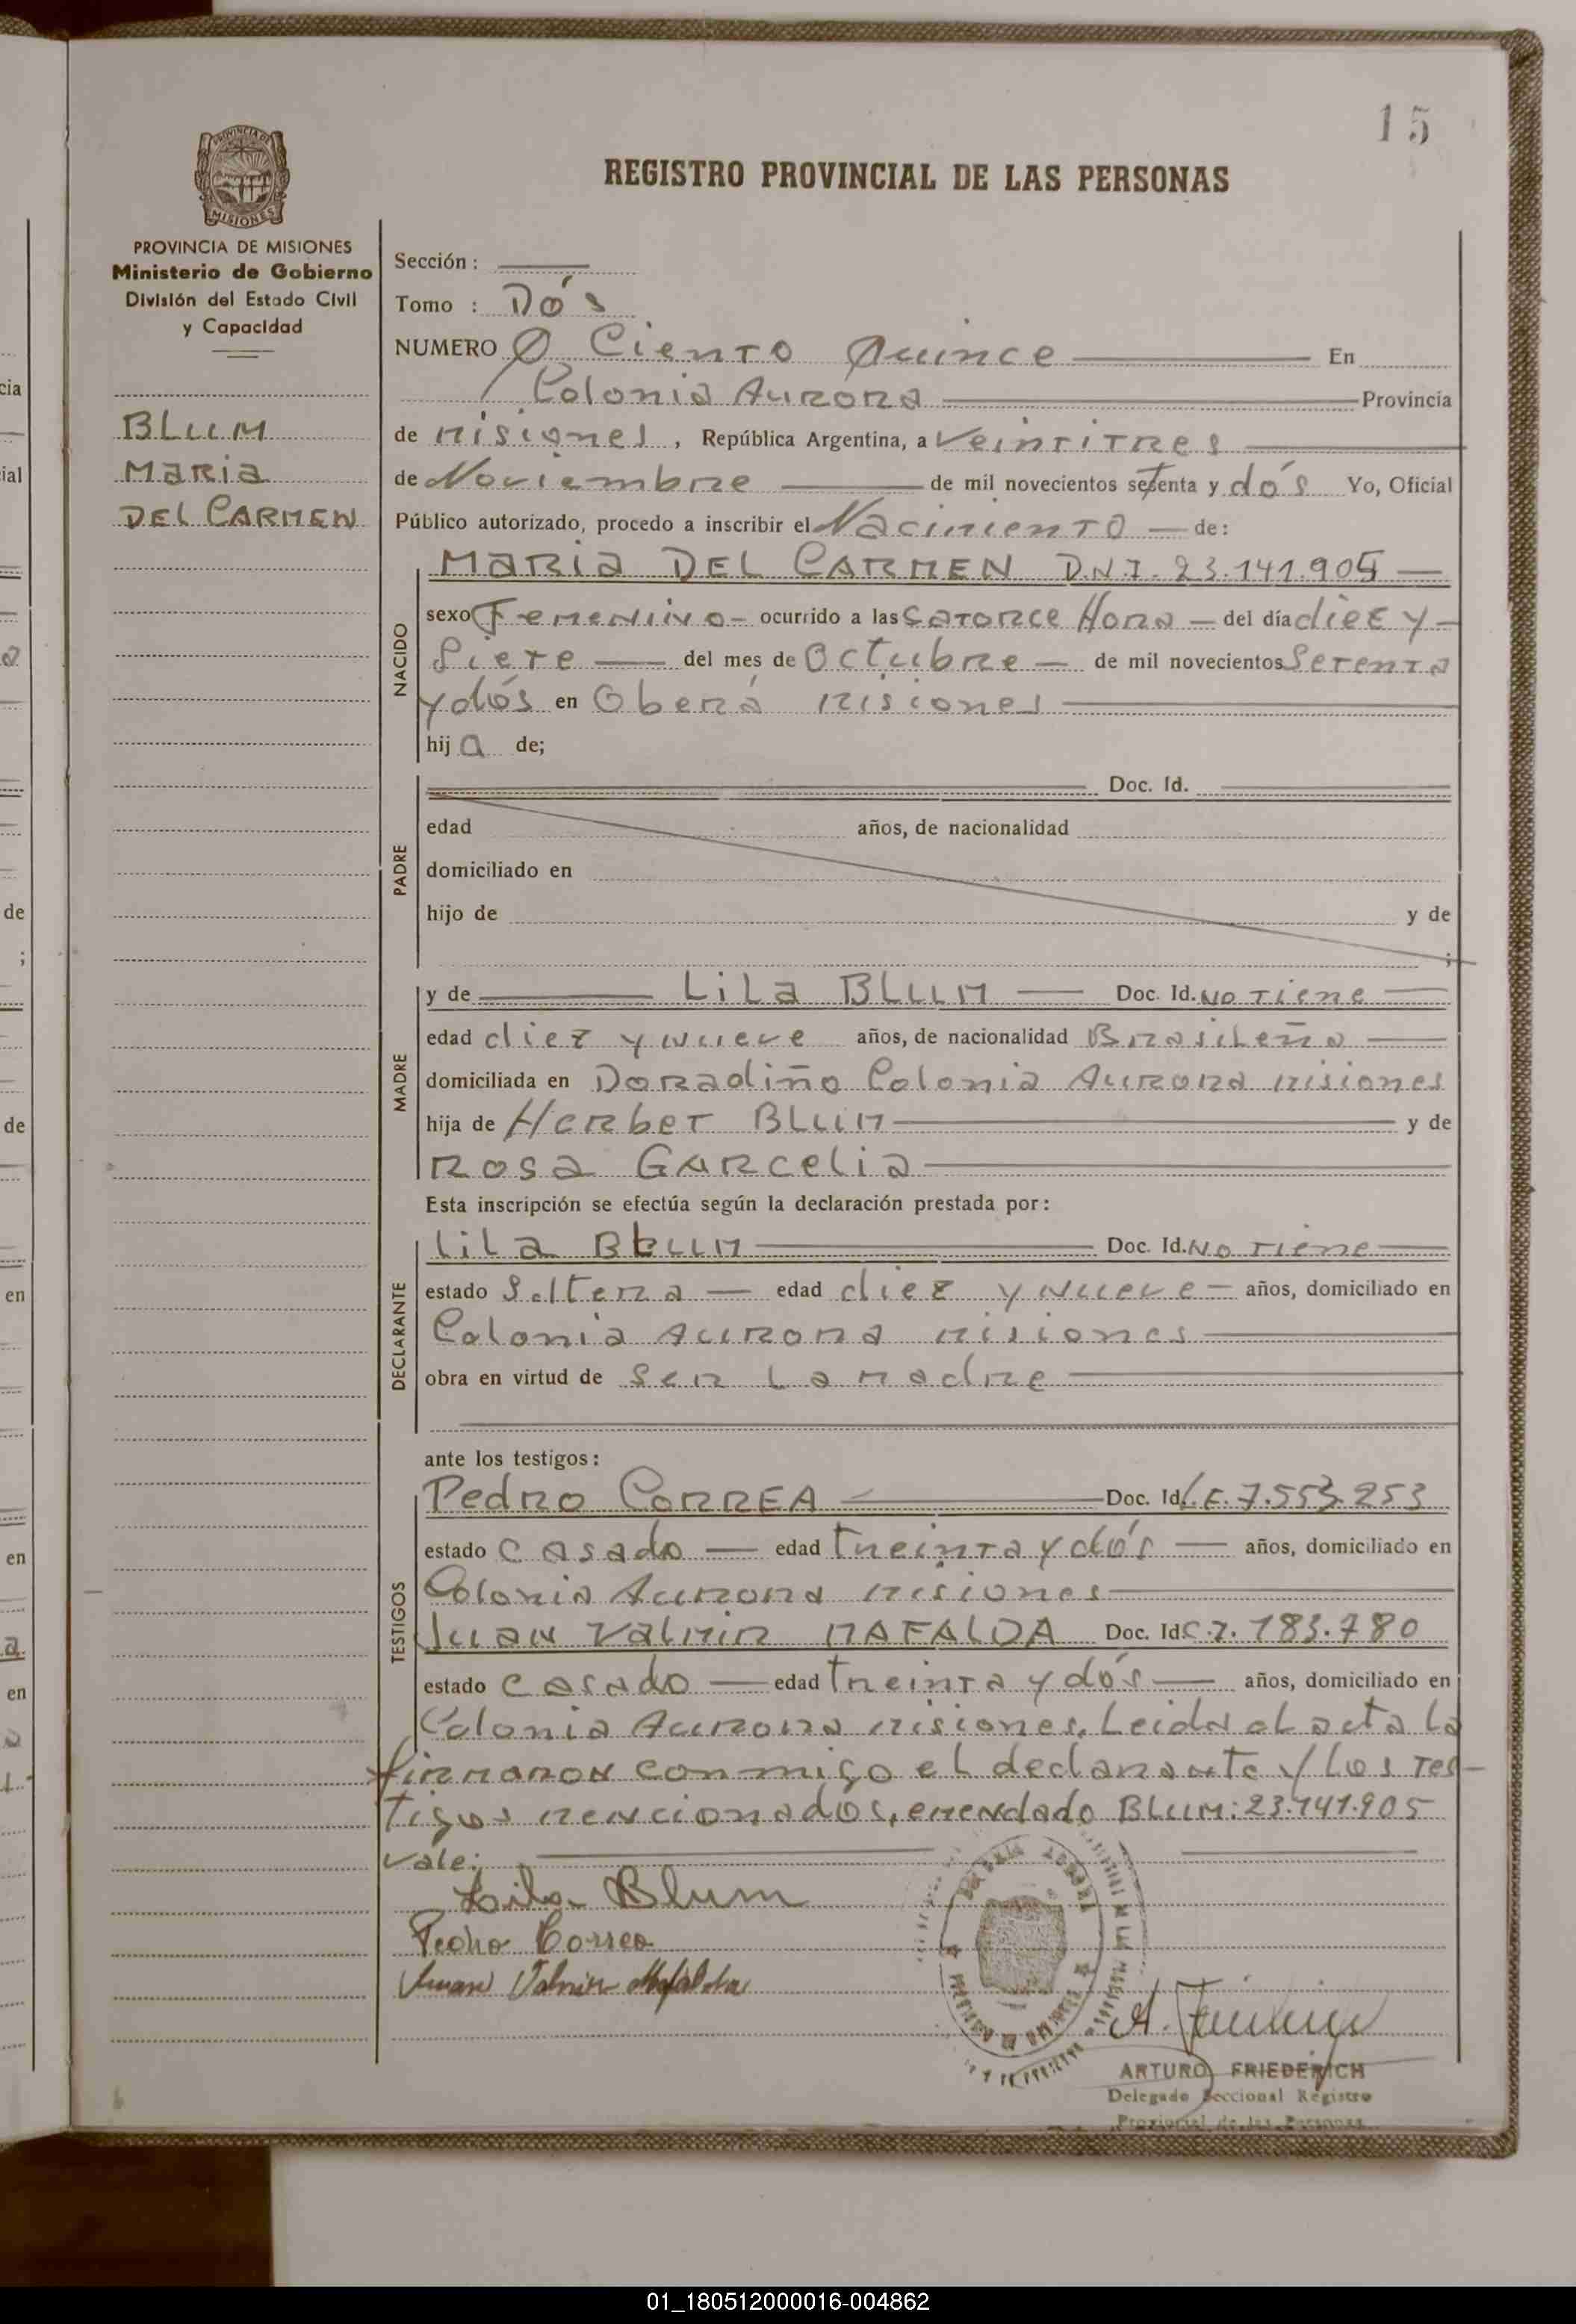 15
REGISTRO PROVINCIAL DE LAS PERSONAS
PROVINCIA DE MISIONES
MISIONES
PROVINCIA DE MISIONES
Ministerio de Gobierno
División del Estado Civil
y Capacidad
BLUM
MARIA
DEL CARMEN
Sección :
Tomo : DÓS
NUMERO Ciento Quince En
Colonia Aurora Provincia
de Misiones, República Argentina, a Veintitres
de Noviembre de mil novecientos setenta y dós Yo, Oficial
Público autorizado, procedo a inscribir el Nacimiento de:
NACIDO
MARIA DEL CARMEN D.N.I. 23.141.905
sexo Femenino ocurrido a las Catorce Hora del día diez y
Siete del mes de Octubre de mil novecientos Setenta
y dós en Oberá Misiones
hij a de;
PADRE
Doc. Id.
edad años, de nacionalidad
domiciliado en
hijo de y de
;
MADRE
y de Lila BLUM Doc. Id. No Tiene
edad diez y Nueve años, de nacionalidad Brasileña
domiciliada en Doradiño Colonia Aurora Misiones
hija de Herber BLUM y de
Rosa Garcelia
Esta inscripción se efectúa según la declaración prestada por :
DECLARANTE
Lila BLUM Doc. Id. No Tiene
estado Soltera edad diez y Nueve años, domiciliado en
Colonia Aurora Misiones
obra en virtud de Ser La Madre
ante los testigos :
TESTIGOS
Pedro CORREA Doc. Id. L.E. 7.553.253
estado Casado edad treinta y dós años, domiciliado en
Colonia Aurora Misiones
Juan Valmir MAFALDA Doc. Id. C.I. 183.780
estado Casado edad treinta y dós años, domiciliado en
Colonia Aurora Misiones. Leida el acta la
firmaron conmigo el declarante y los tes-
tigos mencionados, enendado BLUM: 23.141.905
vale:
Lila Blum
Pedro Correa
Juan Valmir Mafalda
ARTURO FRIEDERICH
Delegado Seccional Registro
Provincial de las Personas
01_180512000016-004862